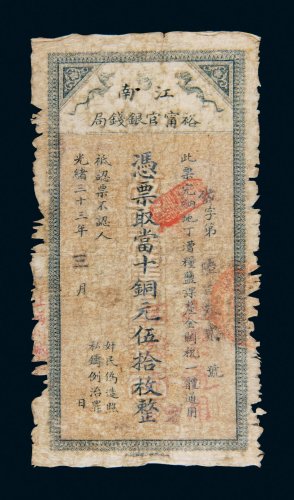 江南
裕甯官銀錢局
字第 號
此票完納地丁漕糧鹽課釐金關稅一體通用
憑票取當十銅元伍拾枚整
祇認票不認人
光緒三十三年 月 日
奸民偽造照
私鑄例治罪